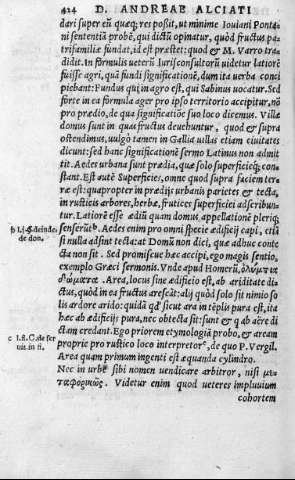 424 D. ANDREAE ALCIATI
dari super eū quæq; res posit, ut minime Iouiani Pontani
ni sententiā probē, qui dictū opinatur, quòd fructus patrisfamiliæ
fundat, id est præstet: quod & M. Varro tradidit.
In formulis ueterū Iurisconsultorū uidetur latiorē
fuisse agri, quā fundi significationē, dum ita uerba concipiebant:
Fundus qui in agro est, qui Sabinus uocatur. Sed
forte in ea formula ager pro ipso territorio accipitur, nō
pro prædio, de qua significatiōe suo loco dicemus. Villæ
domus sunt in quas fructus deuehuntur, quod & supra
ostendimus, uulgò tamen in Gallia uillas etiam ciuitates
dicunt: sed hanc significationē sermo Latinus non admittit.
Aedes urbana sunt prædia, quæ solo superficieq; constant.
Est autē Superficies, omne quod supra faciem terræ
est: quapropter in prædijs urbanis parietes & tecta,
in rusticis arbores, herbæ, frutices superficiei adscribuntur.
Latiorē esse ædiū quàm domus, appellationē pleriq;
b Li. deinde de don.
senserūt. Aedes enim pro omni specie ædificij capi, etiā
si nulla adsint tecta: at Domū non dici, quæ adhuc contecta
non sit. Sed promiscue hæc accipi, ego magis sentio,
exemplo Græci sermonis. Vnde apud Homerū, ὀλύμπια
δώματα. Area, locus sine ædificio est, ab ariditate dictus,
quòd in ea fructus arescāt: alij quòd solo sit nimio solis
ardore arido: quidā qd' sicut ara in tēplis pura est, ita
hæc ab ædificijs pura, nec obtecta sit: sunt & q ab aëre dictam
credant. Ego priorem etymologiā probo, & aream
proprie pro rustico loco interpretor, de quo P. Vergil.
Area quam primum ingenti est æquanda cylindro.
Nec in urbe sibi nomen uendicare arbitror, nisi μεταφορικῶς.
Videtur enim quod ueteres impluuium
cohortem